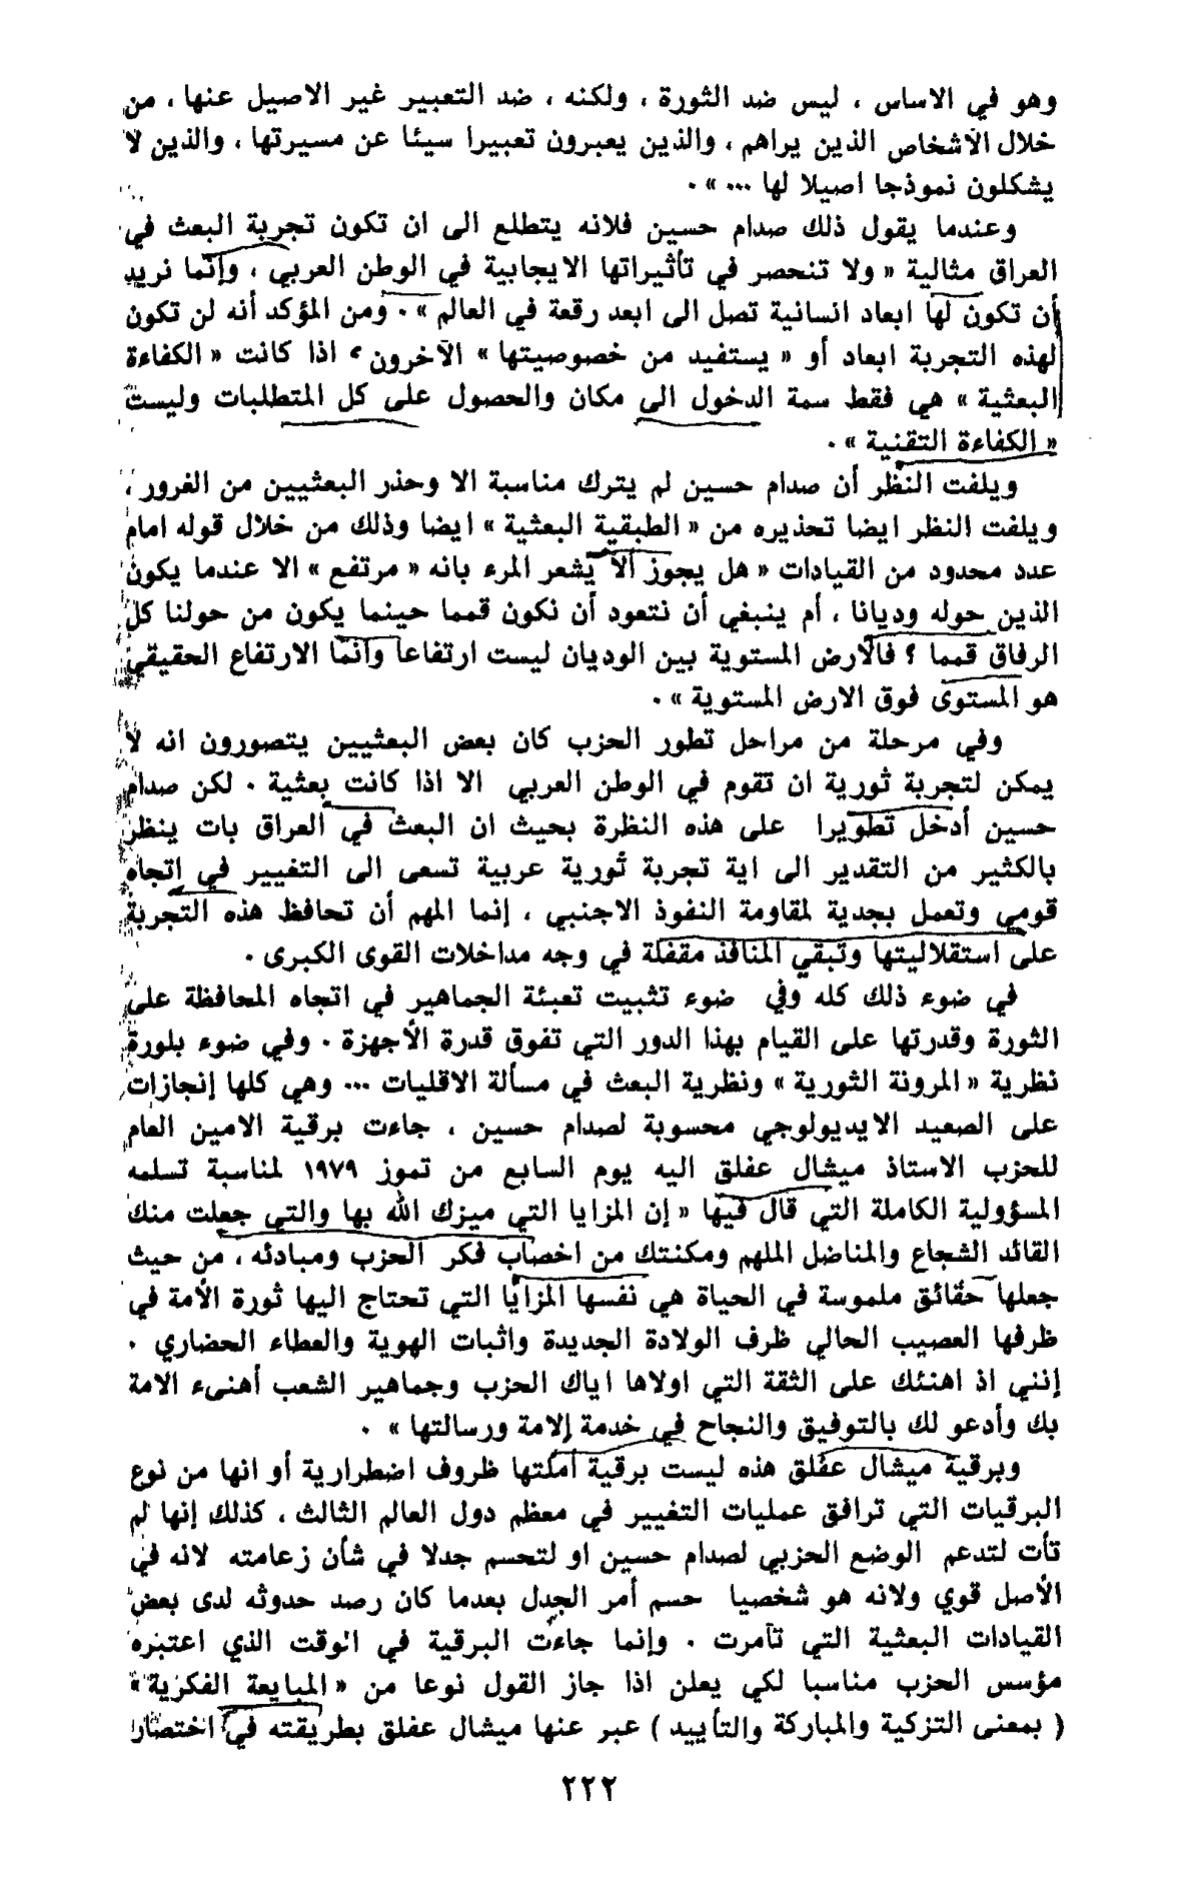 وهو في الاساس ، ليس ضد الثورة ، ولكنه ، ضد التعبير غير الاصيل عنها ، من
خلال الآشخاص الذين يراهم ، والذين يعبرون تعبيرا سيئا عن مسيرتها ، والذين لا
يشكلون نموذجا اصيلا لها ... » .
وعندما يقول ذلك صدام حسين فلانه يتطلع الى ان تكون تجربة البعث في
العراق مثالية « ولا تنحصر في تأثيراتها الايجابية في الوطن العربي ، وإنّما نريد
أن تكون لها ابعاد انسانية تصل الى ابعد رقعة في العالم » . ومن المؤكد أنه لن تكون
لهذه التجربة ابعاد أو « يستفيد من خصوصيتها » الآخرون ، اذا كانت « الكفاءة
البعثية » هي فقط سمة الدخول الى مكان والحصول على كل المتطلبات وليست
« الكفاءة التقنية » .
ويلفت النظر أن صدام حسين لم يترك مناسبة الا وحذر البعثيين من الغرور ،
ويلفت النظر ايضا تحذيره من « الطبقية البعثية » ايضا وذلك من خلال قوله امام
عدد محدود من القيادات « هل يجوز ألا يشعر المرء بانه « مرتفع » الا عندما يكون
الذين حوله وديانا ، أم ينبغي أن نتعود أن نكون قمما حينما يكون من حولنا كل
الرفاق قمما ؟ فالارض المستوية بين الوديان ليست ارتفاعا وانما الارتفاع الحقيقي
هو المستوى فوق الارض المستوية » .
وفي مرحلة من مراحل تطور الحزب كان بعض البعثيين يتصورون انه لا
يمكن لتجربة ثورية ان تقوم في الوطن العربي الا اذا كانت بعثية . لكن صدام
حسين أدخل تطويرا على هذه النظرة بحيث ان البعث في العراق بات ينظر
بالكثير من التقدير الى اية تجربة ثورية عربية تسعى الى التغيير في اتجاه
قومي وتعمل بجدية لمقاومة النفوذ الاجنبي ، إنما المهم أن تحافظ هذه التجربة
على استقلاليتها وتبقي المنافذ مقفلة في وجه مداخلات القوى الكبرى .
في ضوء ذلك كله وفي ضوء تثبيت تعبئة الجماهير في اتجاه المحافظة على
الثورة وقدرتها على القيام بهذا الدور التي تفوق قدرة الأجهزة . وفي ضوء بلورة
نظرية « المرونة الثورية » ونظرية البعث في مسألة الاقليات ... وهي كلها إنجازات
على الصعيد الايديولوجي محسوبة لصدام حسين ، جاءت برقية الامين العام
للحزب الاستاذ ميشال عفلق اليه يوم السابع من تموز ١٩٧٩ لمناسبة تسلمه
المسؤولية الكاملة التي قال فيها « إن المزايا التي ميزك الله بها والتي جعلت منك
القائد الشجاع والمناضل الملهم ومكنتك من اخصاب فكر الحزب ومبادئه ، من حيث
جعلها حقائق ملموسة في الحياة هي نفسها المزايا التي تحتاج اليها ثورة الأمة في
ظرفها العصيب الحالي ظرف الولادة الجديدة واثبات الهوية والعطاء الحضاري .
إنني اذ اهنئك على الثقة التي اولاها اياك الحزب وجماهير الشعب أهنىء الامة
بك وأدعو لك بالتوفيق والنجاح في خدمة الامة ورسالتها » .
وبرقية ميشال عفلق هذه ليست برقية أملتها ظروف اضطرارية أو انها من نوع
البرقيات التي ترافق عمليات التغيير في معظم دول العالم الثالث ، كذلك إنها لم
تأت لتدعم الوضع الحزبي لصدام حسين او لتحسم جدلا في شأن زعامته لانه في
الأصل قوي ولانه هو شخصيا حسم أمر الجدل بعدما كان رصد حدوثه لدى بعض
القيادات البعثية التي تآمرت . وإنما جاءت البرقية في الوقت الذي اعتبره
مؤسس الحزب مناسبا لكي يعلن اذا جاز القول نوعا من « المبايعة الفكرية »
( بمعنى التزكية والمباركة والتأييد ) عبر عنها ميشال عفلق بطريقته في اختصار
٢٢٢